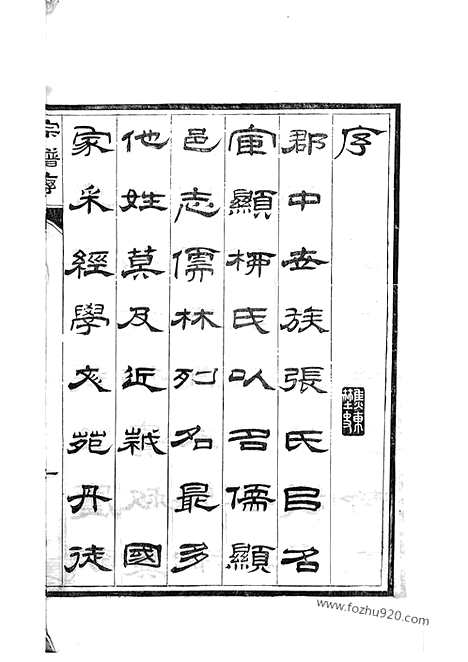 序
郡中世族張氏㠯名
宦顯柳氏以名儒顯
邑志儒林列名最多
他姓莫及近 國
家采經學文苑丹徒
宗譜序
一
www.fozhu920.com